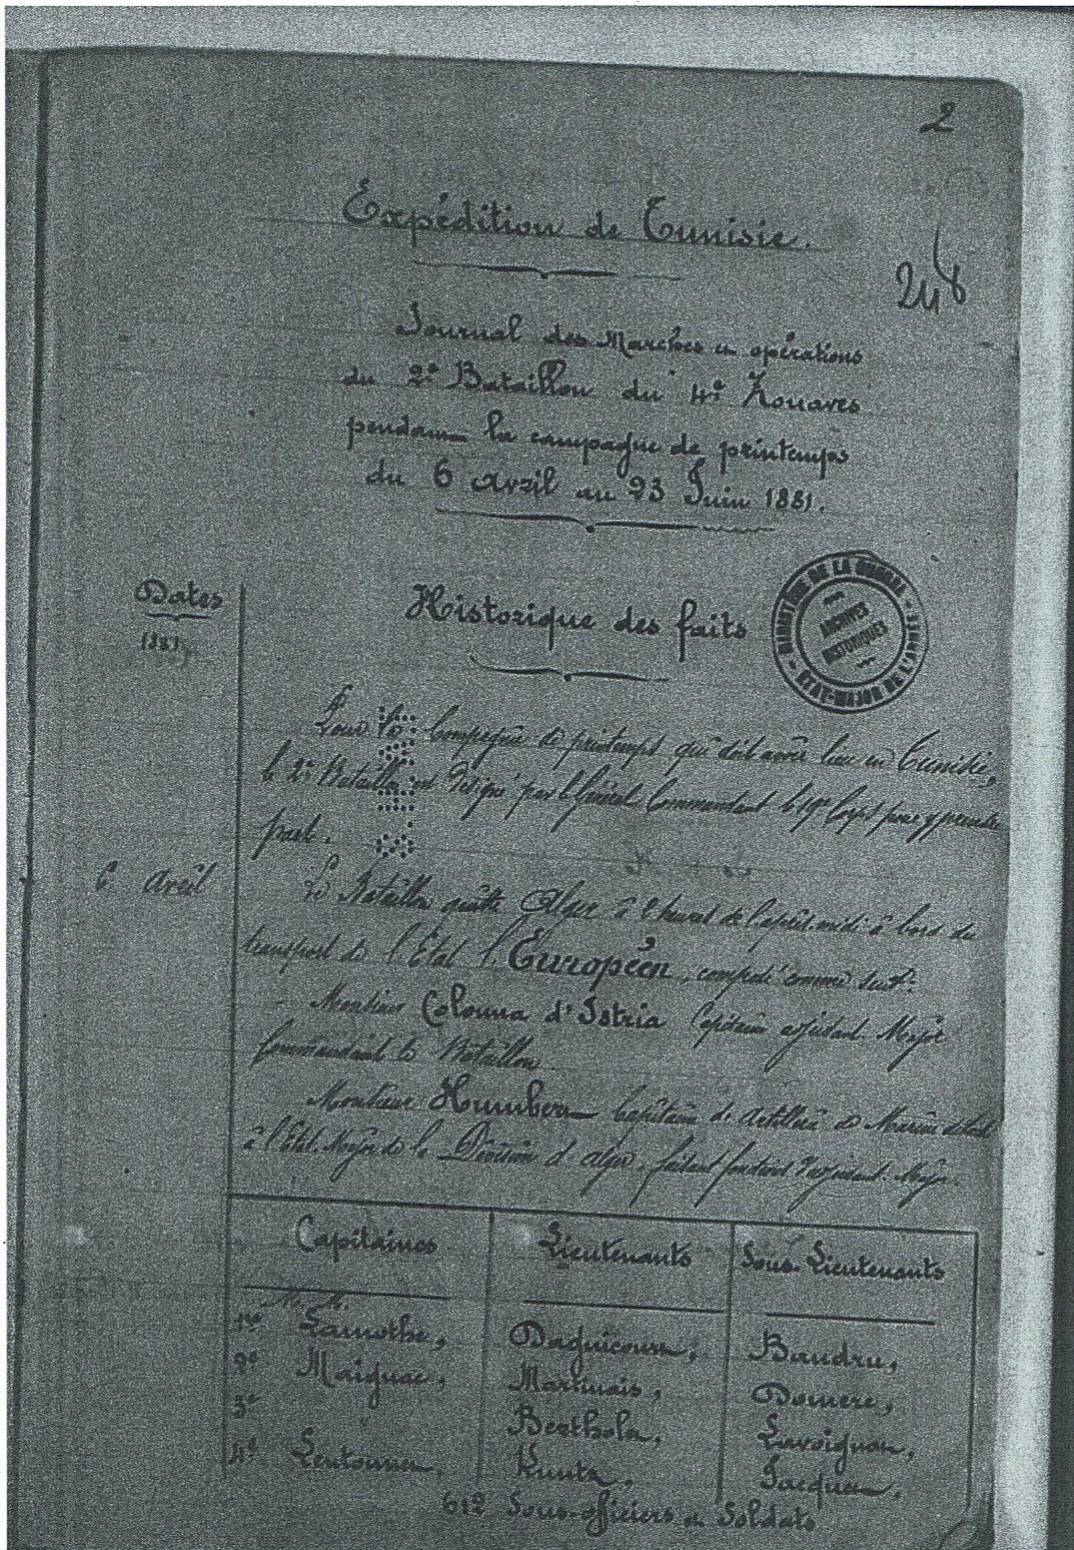 2
Expédition de Tunisie.
248
Journal des Marches et opérations
du 2e Bataillon du 4e Zouaves
pendant la campagne de printemps
du 6 avril au 23 Juin 1881.
Dates
1881
Historique des faits
MINISTÈRE DE LA GUERRE
ARCHIVES
HISTORIQUES
ETAT-MAJOR DE L'ARMÉE
Pour la Campagne de printemps qui doit avoir lieu en Tunisie,
le 2e Bataillon est désigné par le Général Commandant le 19e Corps pour y prendre
part.
6 avril
Le Bataillon quitte Alger à 2 heures de l'après-midi à bord du
transport de l'Etat l'Européen, composé comme suit:
Monsieur Colonna d'Istria Capitaine adjudant-Major
Commandant le Bataillon.
Monsieur Humbert Capitaine d'artillerie de Marine détaché
à l'Etat-Major de la Division d'Alger, faisant fonctions d'adjudant-Major.
Capitaines Lieutenants Sous-Lieutenants
M.M.
1re Lamothe, Baudru,
2e Maignac, Martinais, Domere,
3e Berthola, Lavoignon,
4e Kuntz, Jacquem,
612 Sous-officiers et Soldats